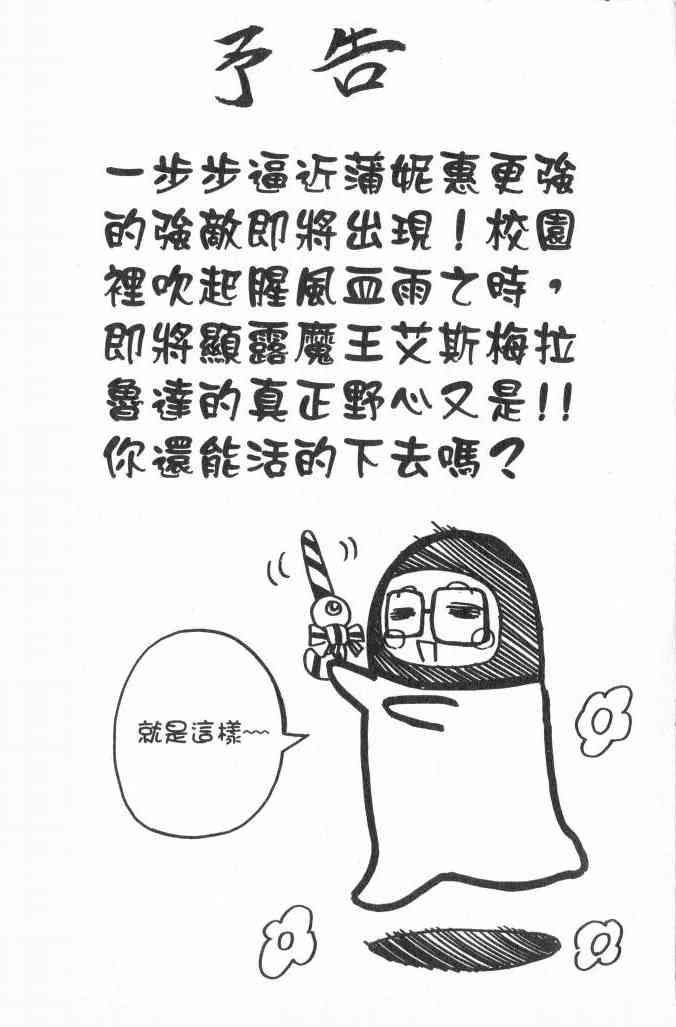 予告
一步步逼近蒲妮惠更強
的強敵即將出現！校園
裡吹起腥風血雨之時，
即將顯露魔王艾斯梅拉
魯達的真正野心又是！！
你還能活的下去嗎？
就是這樣~~